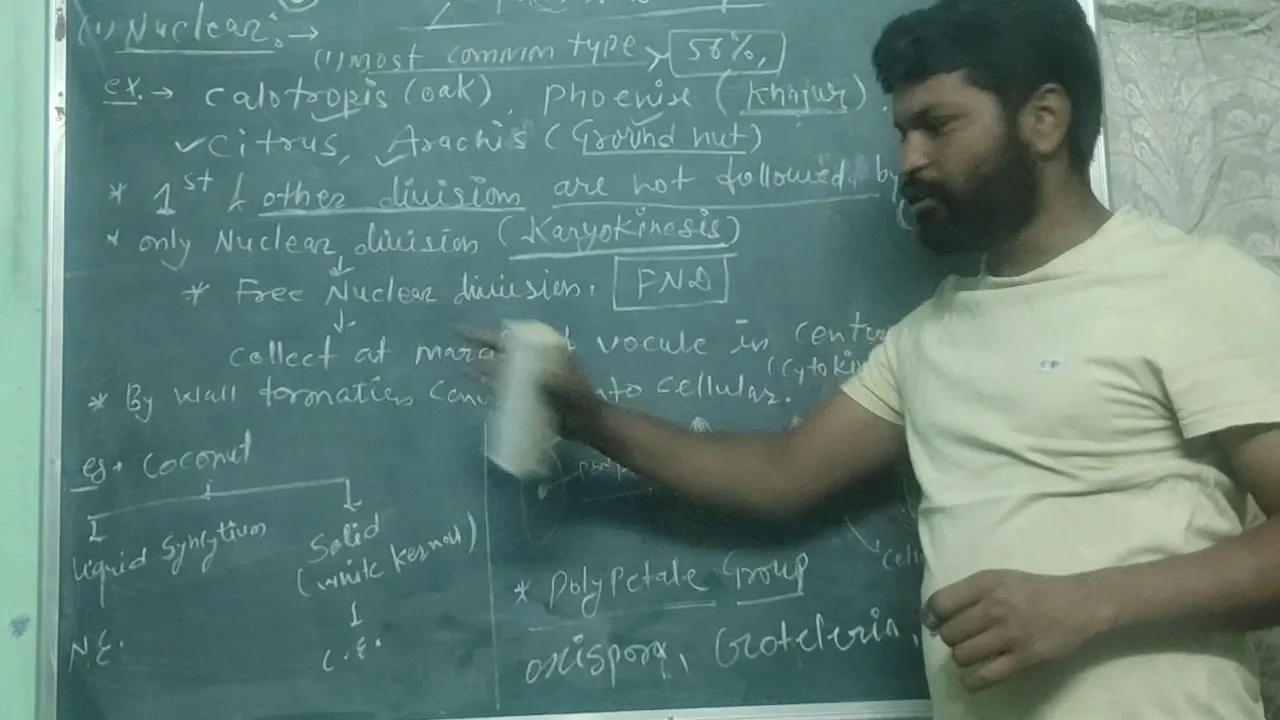 (1) Nuclear: →
(1) most common type → 56%,
ex. → Calotropis (oak), Phoenise (Khajur)
Citrus, Arachis (Ground nut)
* 1st & other division are not followed by
* only Nuclear division (Karyokinesis)
* Free Nuclear division. FND
collect at vocule in
(Cytokin
* By wall formation into cellular.
eg. Coconut
Liquid Syncytium
Solid
(white kernal)
N.E.
C.E.
* Polypetale Group